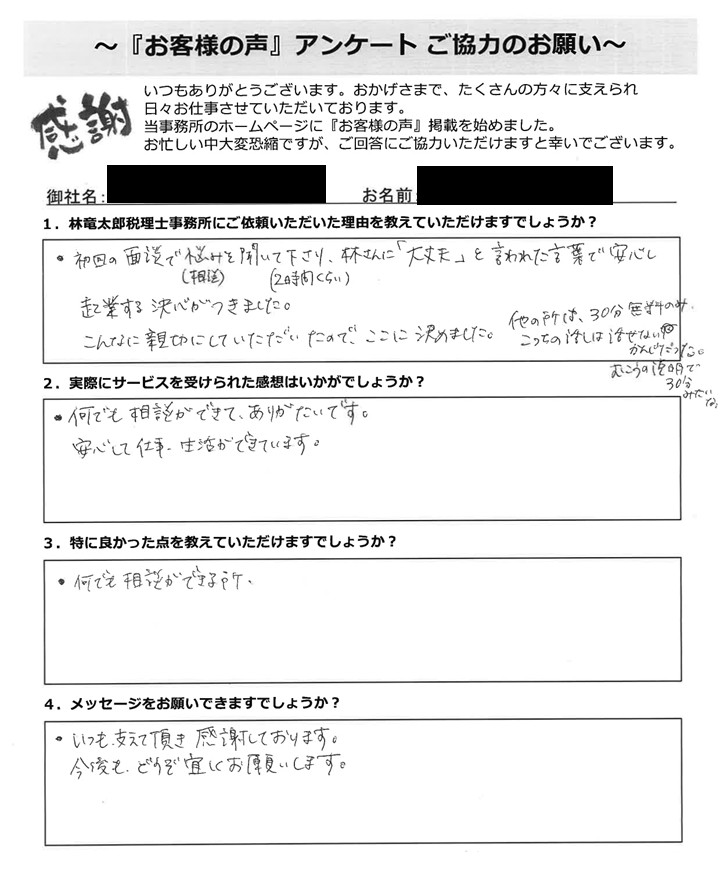 ～『お客様の声』アンケート ご協力のお願い～
感謝
いつもありがとうございます。おかげさまで、たくさんの方々に支えられ
日々お仕事させていただいております。
当事務所のホームページに『お客様の声』掲載を始めました。
お忙しい中大変恐縮ですが、ご回答にご協力いただけますと幸いでございます。
御社名: お名前:
1．林竜太郎税理士事務所にご依頼いただいた理由を教えていただけますでしょうか？
・初回の面談で悩みを聞いて下さり、林さんに「大丈夫」と言われた言葉で安心し
(相談) (2時間くらい)
起業する決心がつきました。
こんなに親切にしていただいたので、ここに決めました。
他の所は、30分無料のみ、
こっちの話しは話せない
かんじだった。
むこうの説明で
30分
みたいな。
2．実際にサービスを受けられた感想はいかがでしょうか？
・何でも相談ができて、ありがたいです。
安心して仕事、生活ができています。
3．特に良かった点を教えていただけますでしょうか？
・何でも相談ができる所、
4．メッセージをお願いできますでしょうか？
・いつも、支えて頂き感謝しております。
今後も、どうぞ宜しくお願いします。